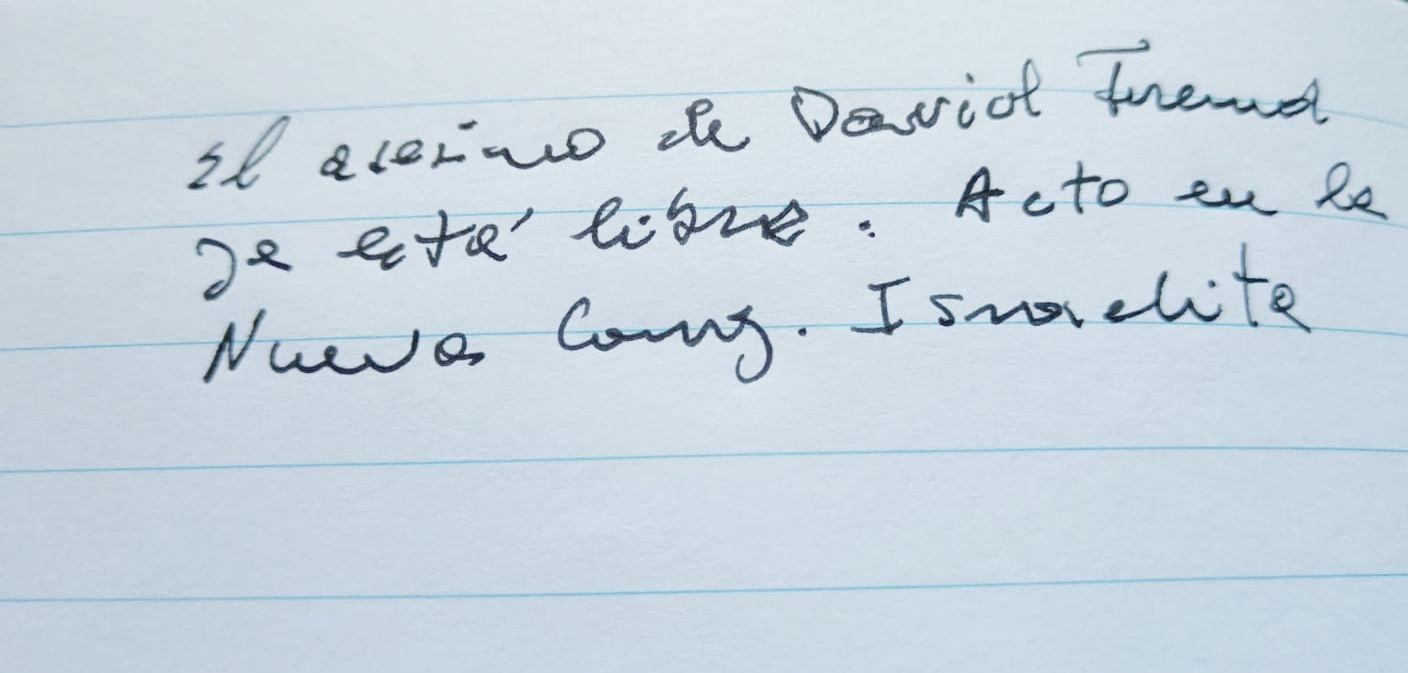 El asesino de David Fremd
ya está libre. Acto en la
Nueva Cong. Israelita